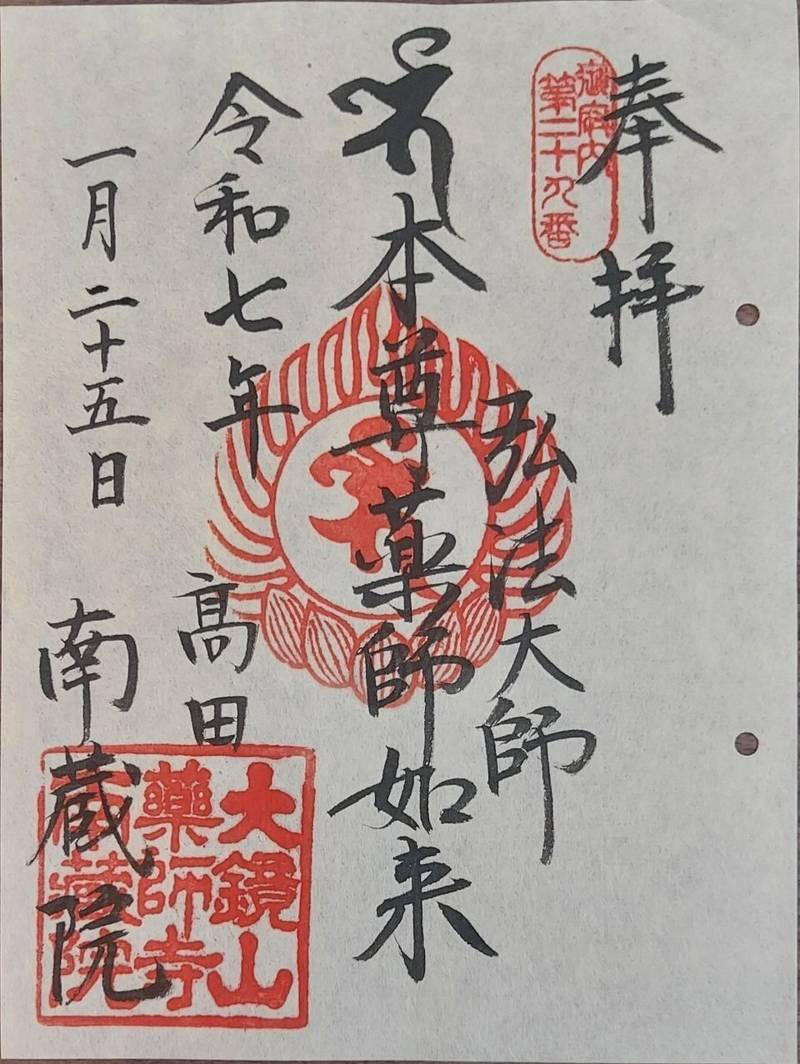 奉拝
御府内
第二十九番
弘法大師
本尊薬師如来
令和七年
一月二十五日
髙田
南蔵院
大鏡山
藥師寺
南藏院